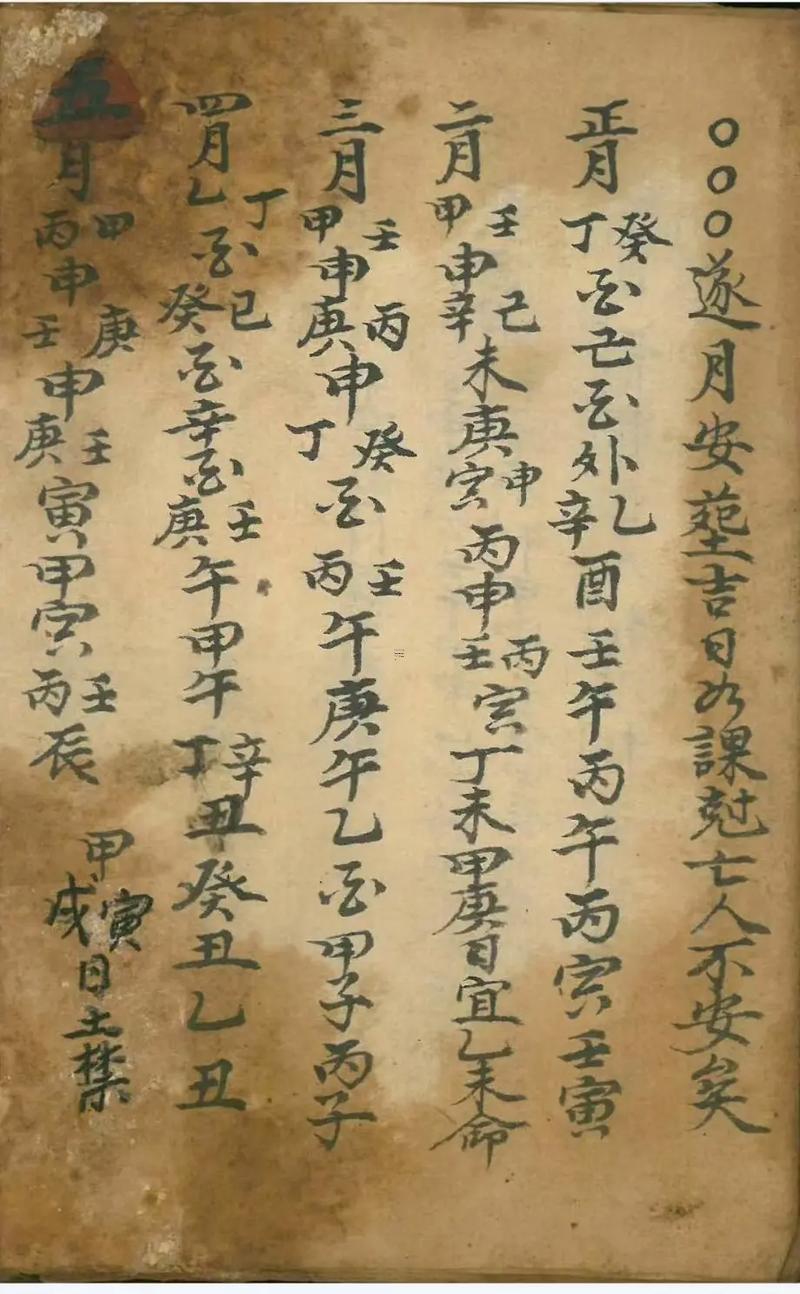 ○○○逐月安葬吉日如課尅亡人不安矣
正月丁癸酉己酉外辛乙酉壬午丙午丙寅壬寅
二月甲壬申辛己未庚寅申丙申壬丙寅丁未甲庚日宜乙未命
三月甲壬申庚丙申丁癸酉丙壬午庚午乙酉甲子丙子
四月乙丁酉癸己酉辛酉庚壬午甲午丁辛丑癸丑乙丑
五月丙甲申壬庚申庚壬寅甲寅丙壬辰 甲戌寅日土禁